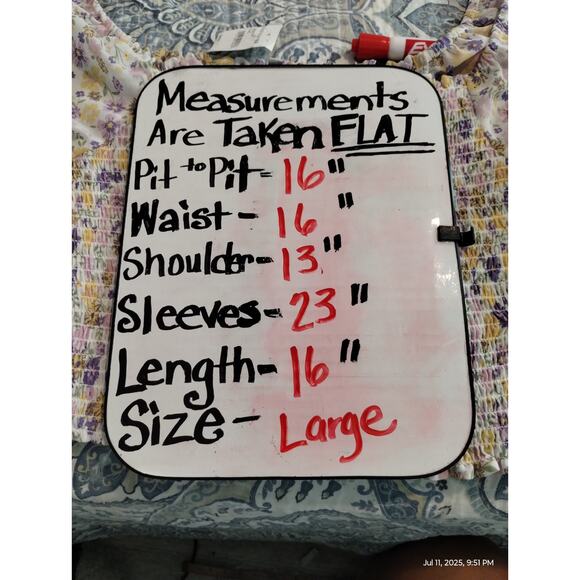 Measurements
Are Taken FLAT
Pit to Pit- 16"
Waist- 16"
Shoulder- 13"
Sleeves- 23"
Length- 16"
Size- Large
Jul 11, 2025, 9:51 PM